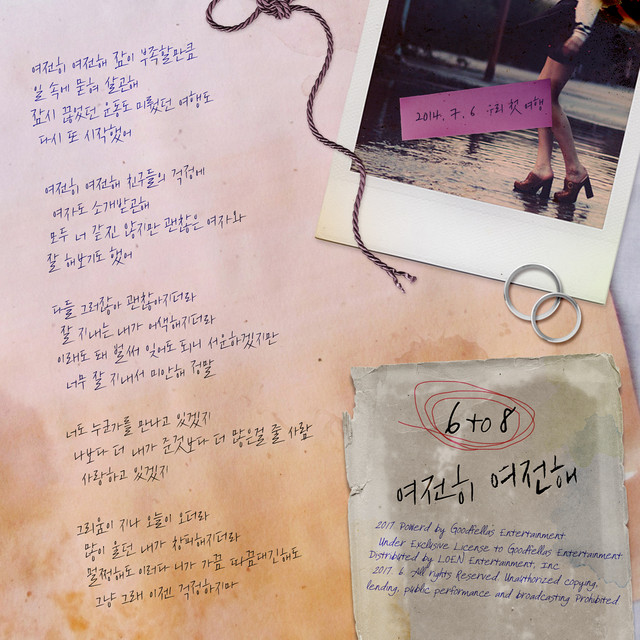 여전히 여전해 잠이 부족할만큼
일 속에 묻혀 살곤해
잠시 끊었던 운동도 미뤘던 여행도
다시 또 시작했어
여전히 여전해 친구들의 걱정에
여자도 소개받곤해
모두 너 같진 않지만 괜찮은 여자와
잘 해보기도 했어
다들 그러잖아 괜찮아지더라
잘 지내는 내가 어색해지더라
이래도 돼 벌써 잊어도 되니 서운하겠지만
너무 잘 지내서 미안해 정말
너도 누군가를 만나고 있겠지
나보다 더 내가 준것보다 더 많은걸 줄 사람
사랑하고 있겠지
그리움이 지나 오늘이 오더라
많이 울던 내가 창피해지더라
멀쩡해도 이러다 니가 가끔 따끔대긴해도
그냥 그래 이젠 걱정하지마
2014. 7. 6 우리 첫 여행
6 to 8
여전히 여전해
2017 Powerd by Goodfella's Entertainment
Under Exclusive License to Goodfellas Entertainment
Distributed by LOEN Entertainment, Inc
2017. 6. All rights Reserved. Unauthorized copying,
lending, public performance and broadcasting Prohibited